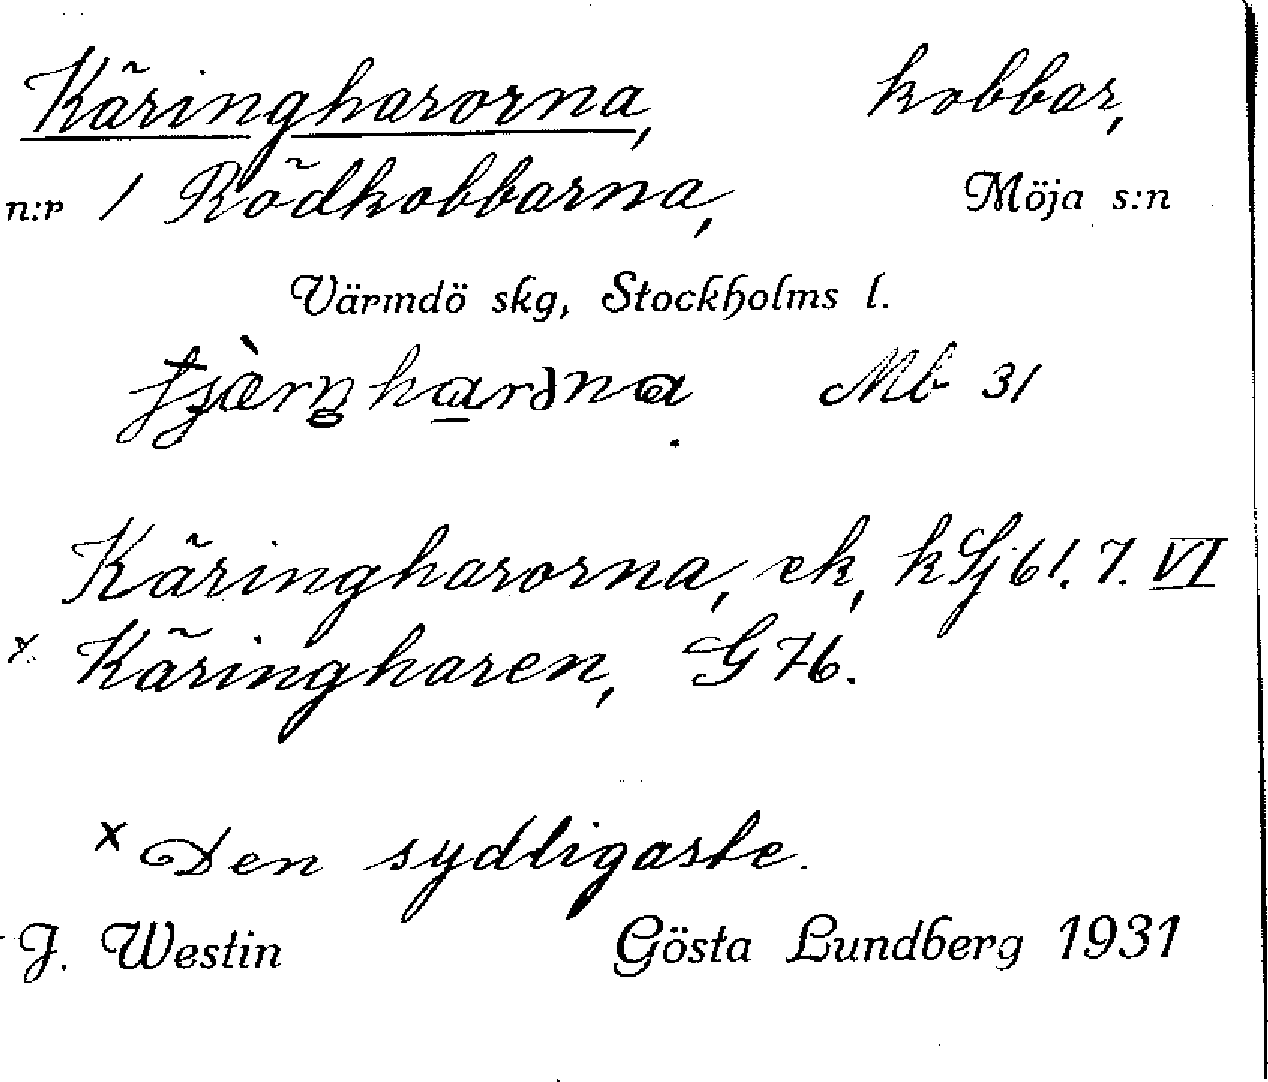 Käringharorna, kobbar,
n:r 1 Rödkobbarna, Möja s:n
Värmdö skg, Stockholms l.
Mb 31
Käringharorna, ek, kSj 61. 7. VI
x. Käringharen, G 76.
x Den sydligaste.
J. Westin Gösta Lundberg 1931